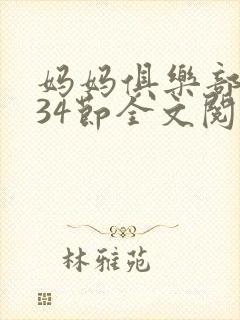 妈妈俱樂部
34節全文閱
林雅苑